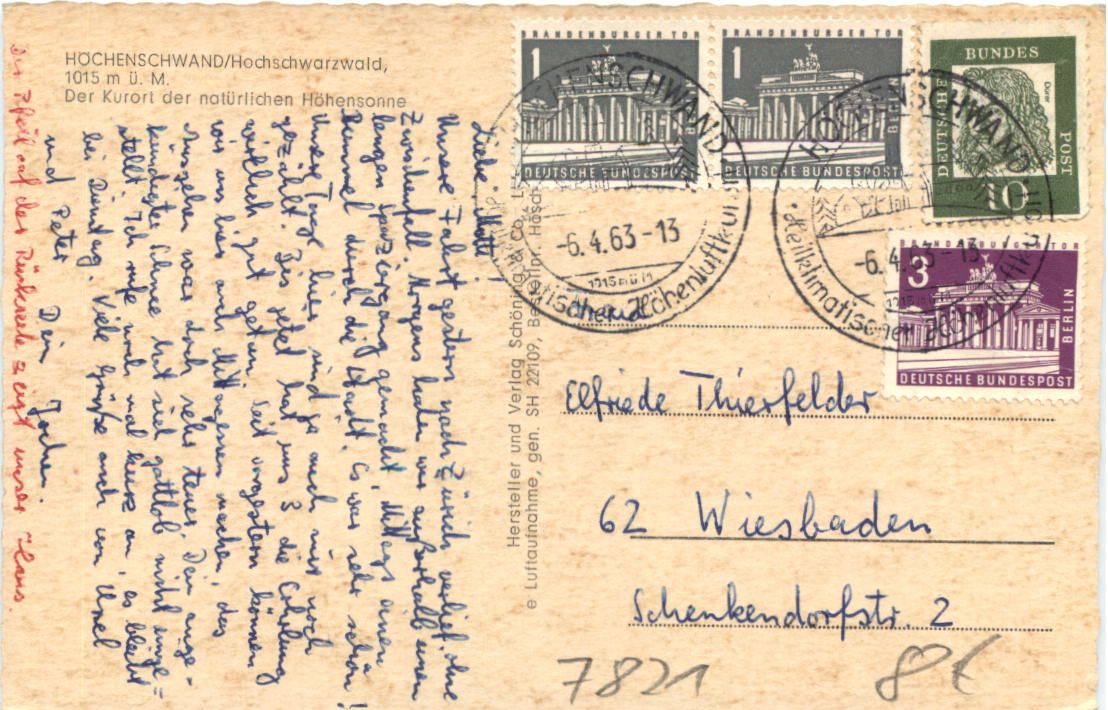 HÖCHENSCHWAND/Hochschwarzwald,
1015 m ü. M.
Der Kurort der natürlichen Höhensonne
Liebe Mutti!
Unsere Fahrt gestern nach Zürich verlief ohne
Zwischenfall. Morgens haben wir außerhalb einen
langen Spaziergang gemacht, Mittags einen
Bummel durch die Stadt. Es war sehr schön!
Unsere Tage hier sind ja auch nur noch
gezählt. Bis jetzt hat uns 3 die Erholung
wirklich gut getan. Seit vorgestern können
wir uns hier auch Mittagessen machen, das
Ausgehen war doch sehr teuer. Dein ange-
kündigter Ischias hat sich gottlob nicht einge=
stellt. Ich rufe noch mal kurz an, es bleibt
bei Dienstag. Viele Grüße auch von Ursel
und Peter Dein Jochen.
Der Pfeil auf der Rückseite zeigt unser Haus.
Hersteller und Verlag Schöning & Co.
e Luftaufnahme, gen. SH 22109,
BRANDENBURGER TOR
1
BERLIN
DEUTSCHE BUNDESPOST
BRANDENBURGER TOR
1
BERLIN
DEUTSCHE BUNDESPOST
BUNDES
POST
DEUTSCHE
Dürer
10
BRANDENBURGER TOR
3
BERLIN
DEUTSCHE BUNDESPOST
HÖCHENSCHWAND
-6.4.63-13
1015 m ü M
Heilklimatischer u. Höhenluftkurort
HÖCHENSCHWAND
-6.4.63-13
1015 m ü M
Heilklimatischer u. Höhenluftkurort
Elfriede Thierfelder
62 Wiesbaden
Schenkendorfstr. 2
7821
8€